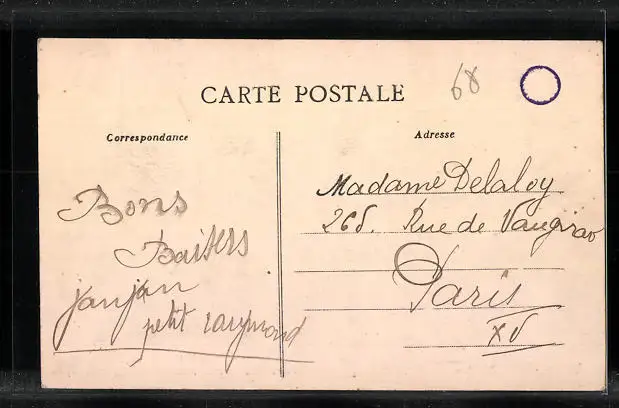 CARTE POSTALE
68
Correspondance
Adresse
Bons
Baisers
janjan
petit raymond
Madame Delaloy
26 Rue de Vaugirar
Paris
XV